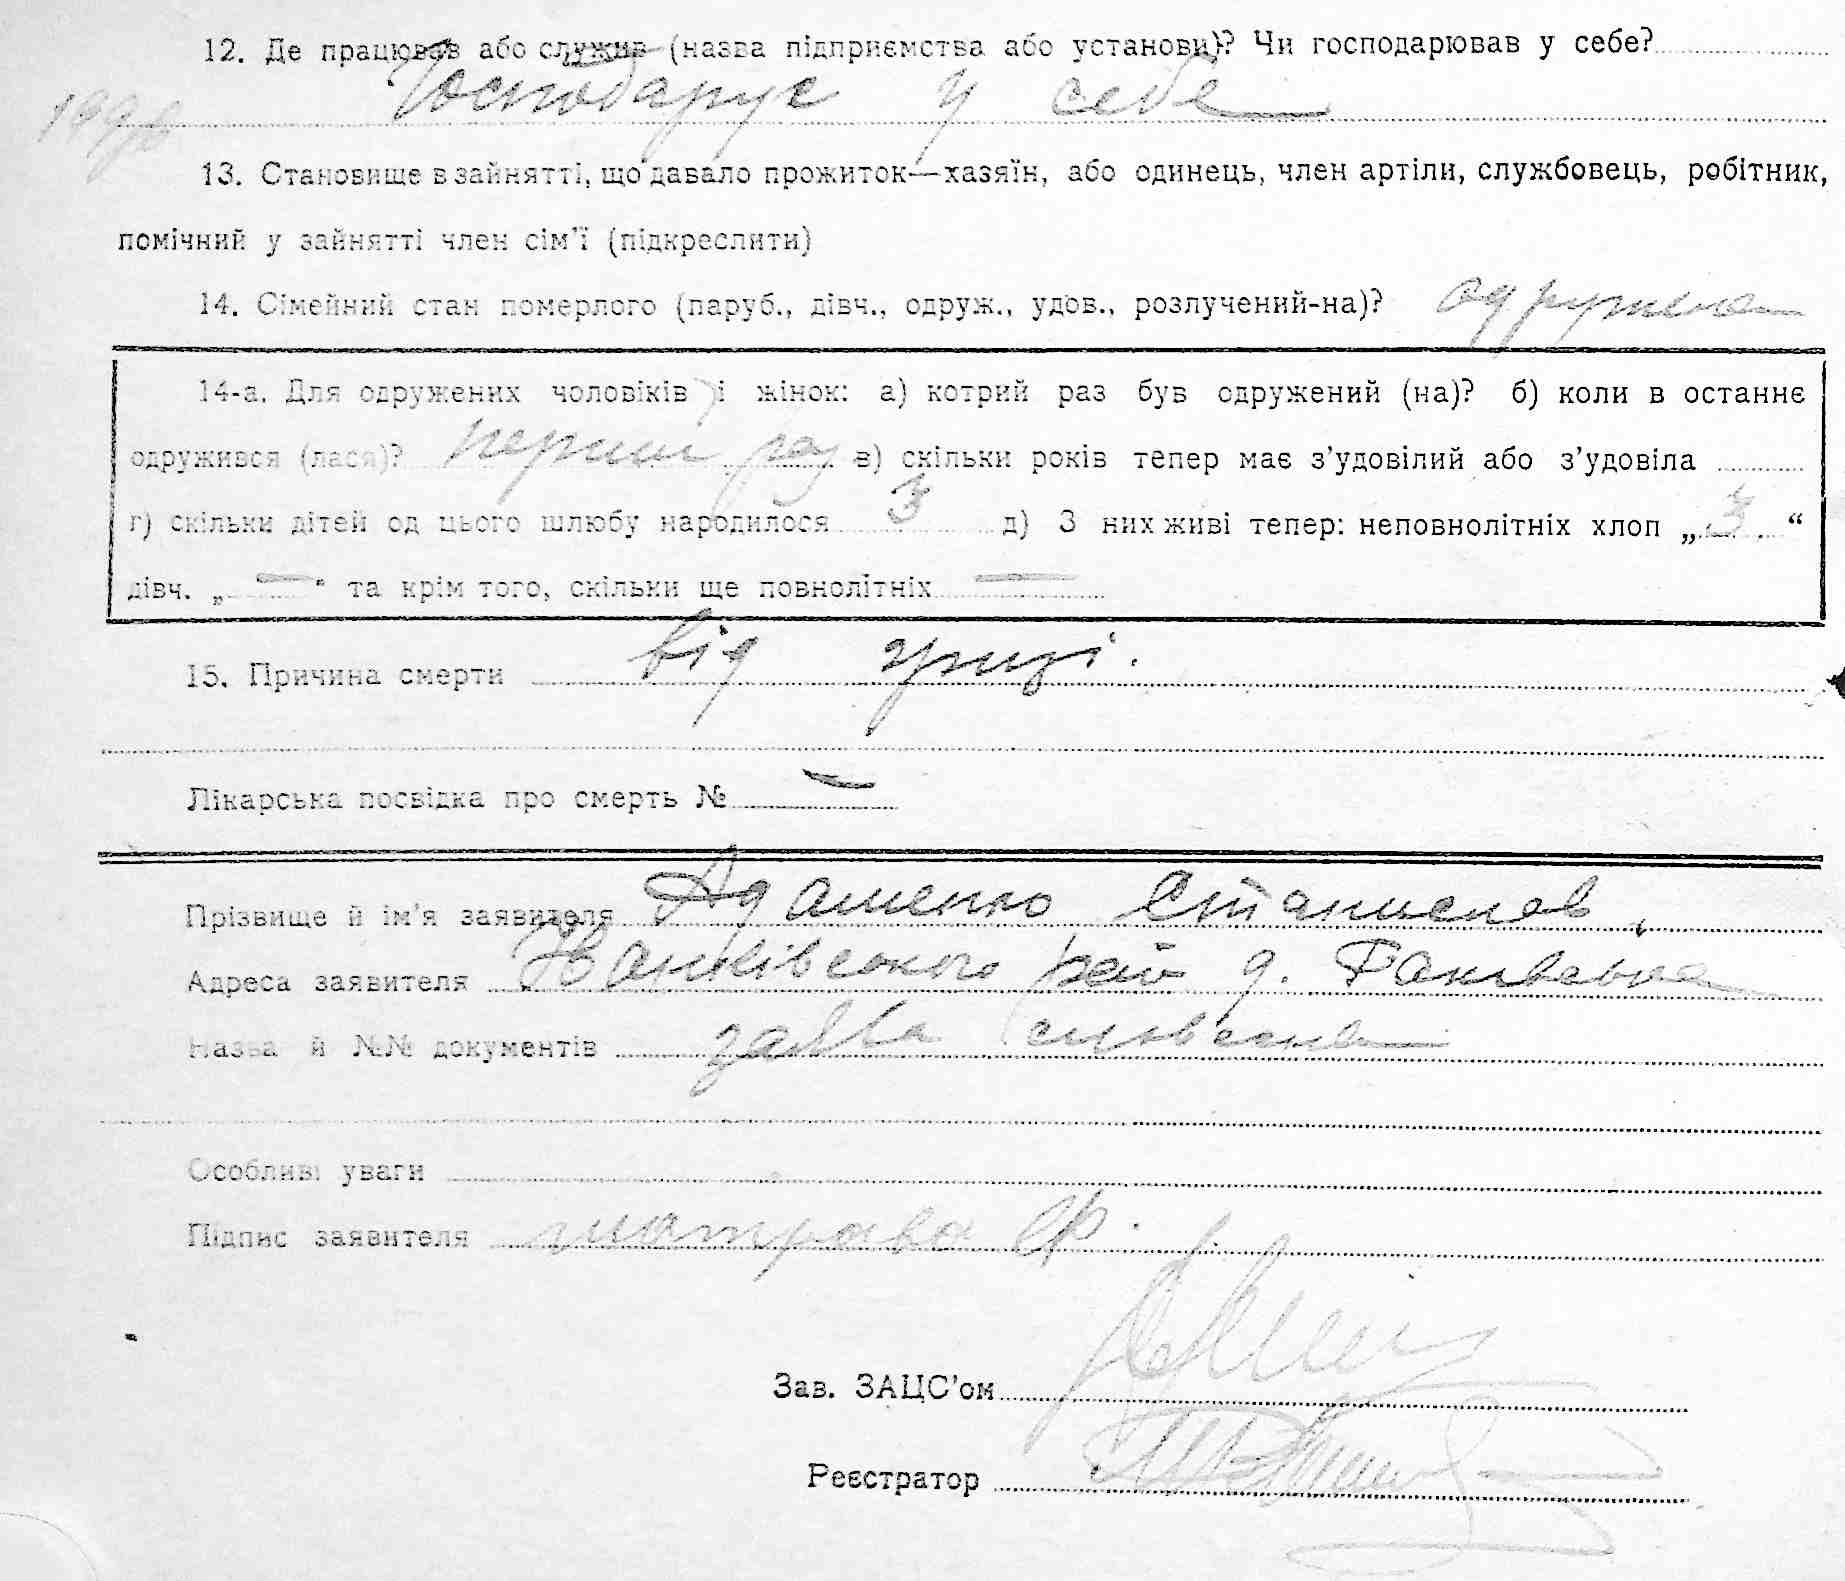 12. Де працював або служив (назва підприємства або установи)? Чи господарював у себе?
Господарує у себе
13. Становище в зайнятті, що давало прожиток—хазяїн, або одинець, член артіли, службовець, робітник,
помічний у зайнятті член сім'ї (підкреслити)
14. Сімейний стан померлого (паруб., дівч., одруж., удов., розлучений-на)? одружена
14-а. Для одружених чоловіків і жінок: а) котрий раз був одружений (на)? б) коли в останнє
одружився (лася)? перший раз в) скільки років тепер має з'удовілий або з'удовіла
г) скільки дітей од цього шлюбу народилося 3 д) З них живі тепер: неповнолітніх хлоп „ 3 “
дівч. „ — “ та крім того, скільки ще повнолітніх —
15. Причина смерти від гризі.
Лікарська посвідка про смерть № —
Прізвище й ім'я заявителя Адаменко Станислав
Адреса заявителя рай д.
Назва й №№ документів заява словесна
Особливі уваги
Підпис заявителя
Зав. ЗАЦС'ом
Реєстратор